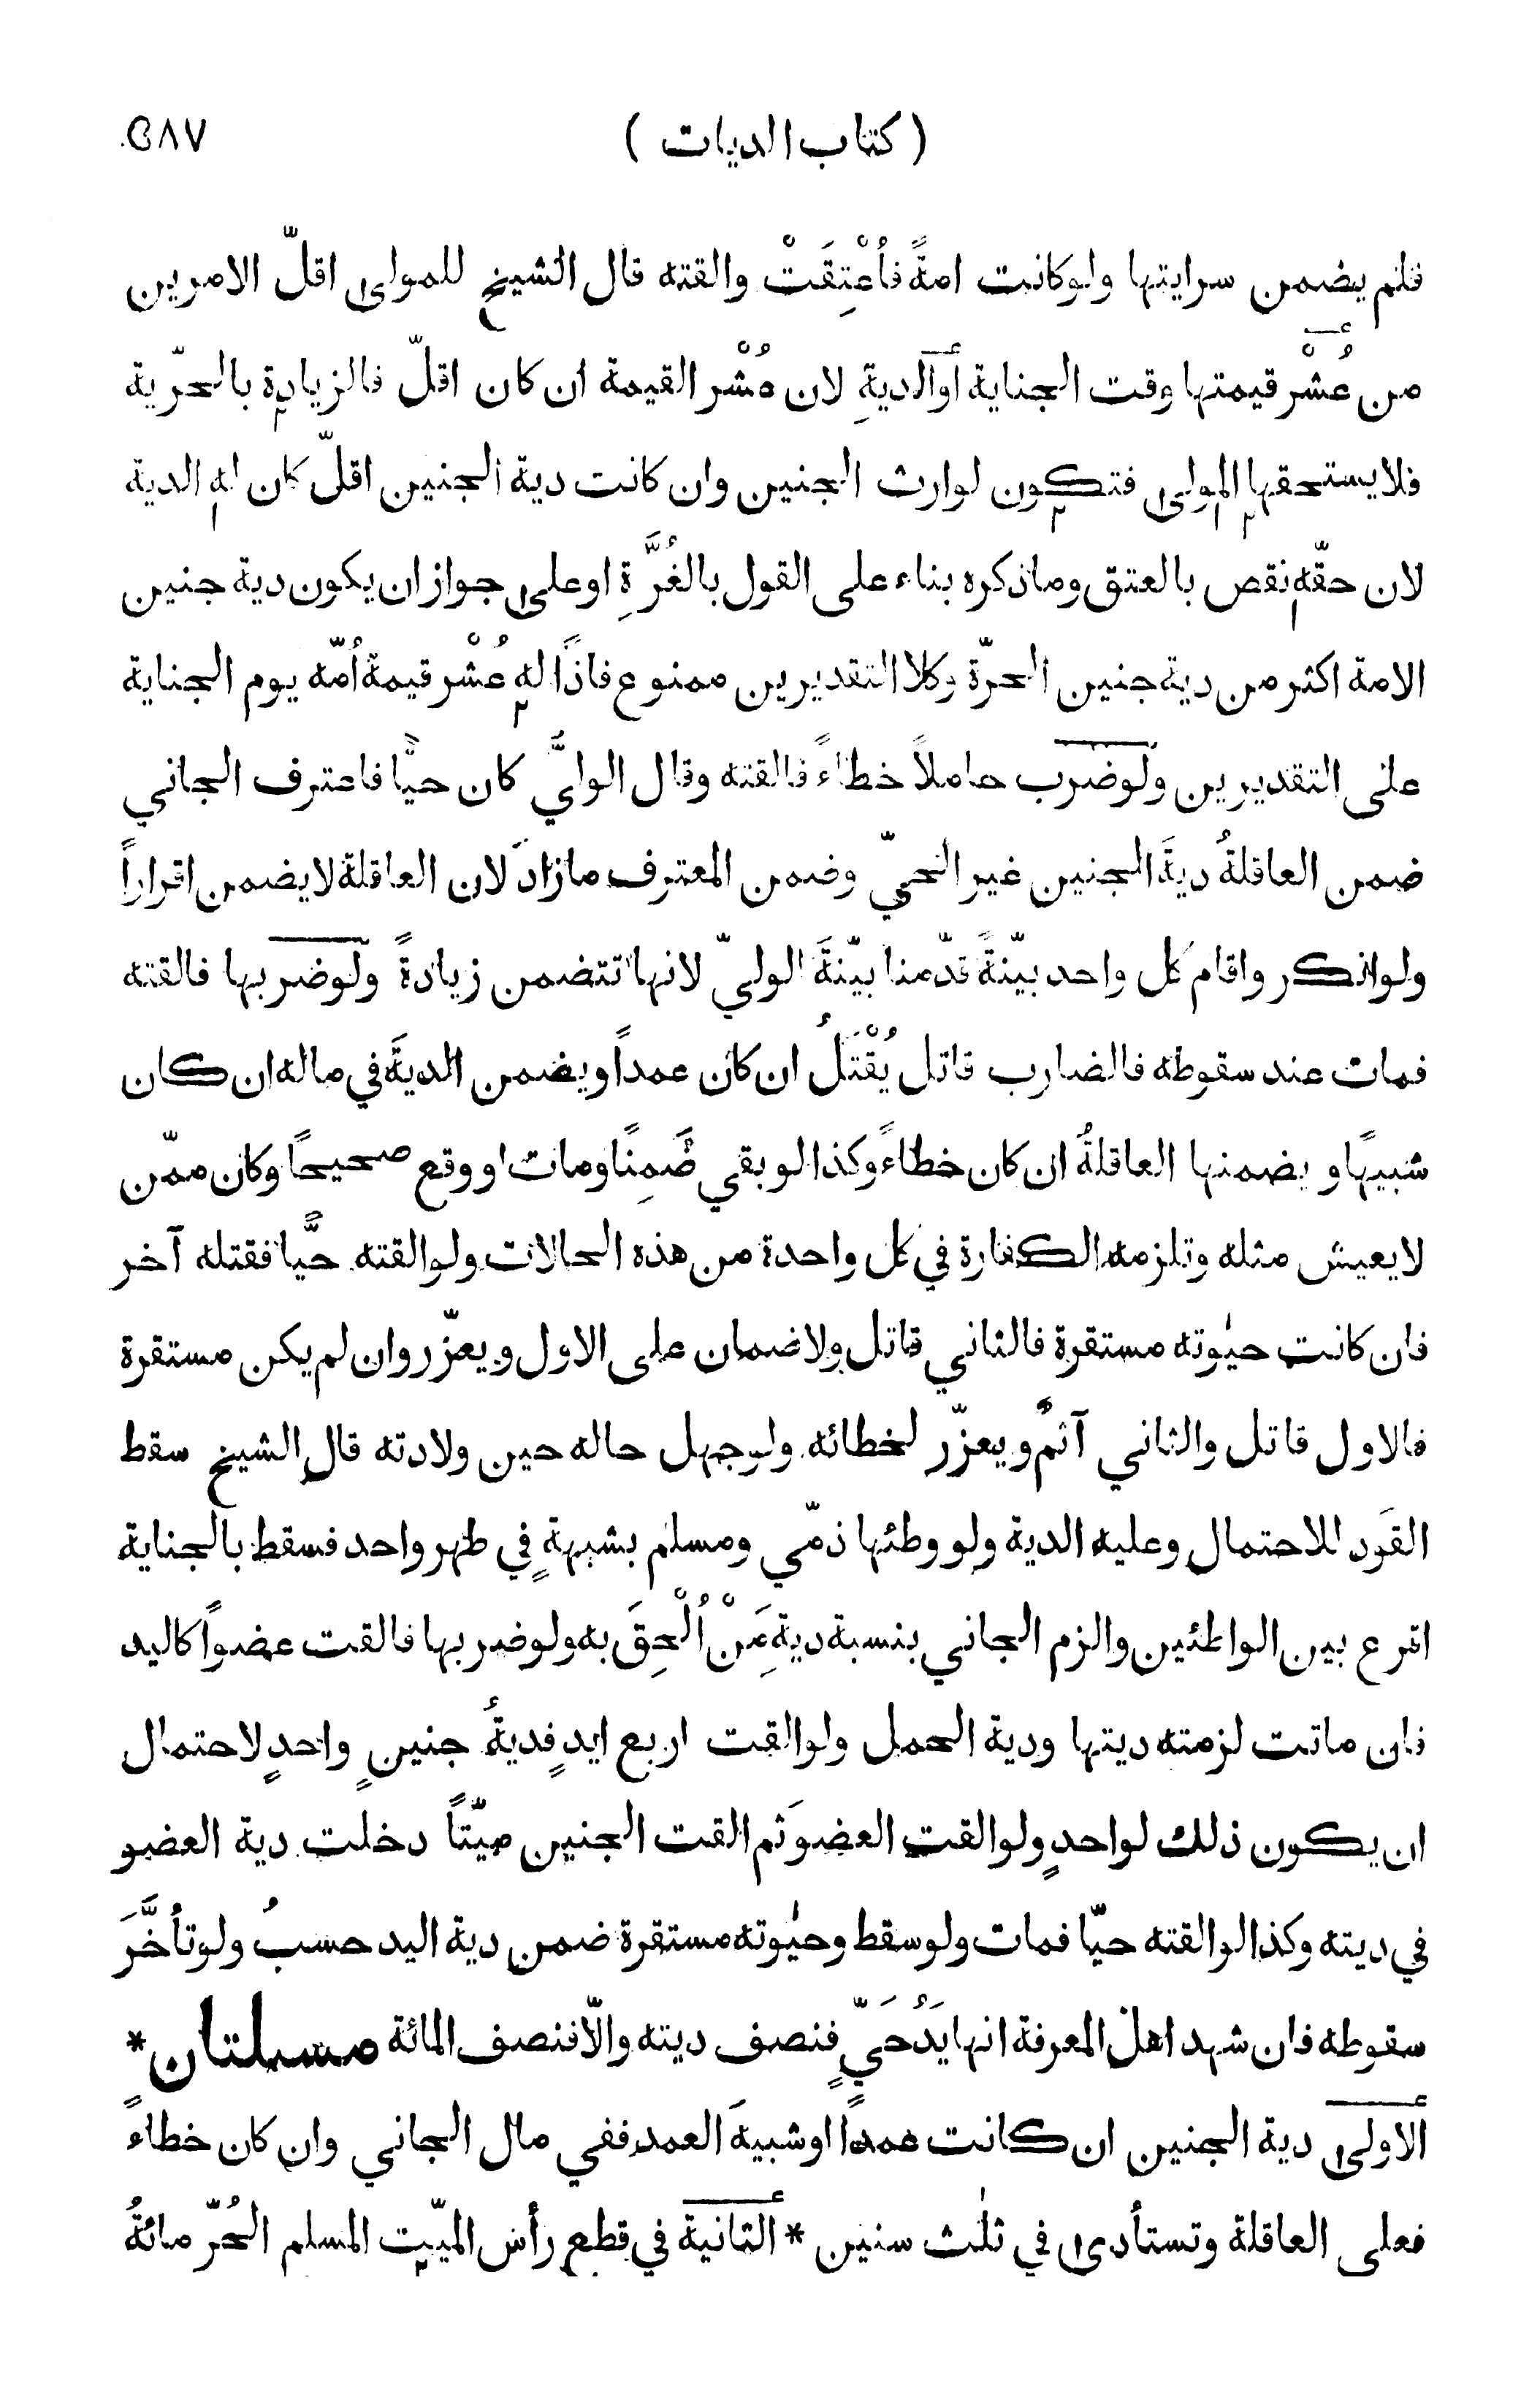 ( كتاب الديات ) ٥٨٧
فلم يضمن سرايتها ولو كانت امةً فاُعْتِقَتْ والقته قال الشيخ للمولى اقلّ الامرين
من عُشْر قيمتها وقت الجناية او الديةِ لان عُشْر القيمة ان كان اقلّ فالزيادة بالحرّية
فلا يستحقها المولى فتكون لوارث الجنين وان كانت دية الجنين اقلّ كان له الدية
لان حقّه نقص بالعتق وما ذكره بناء على القول بالغُرَّةِ او على جواز ان يكون دية جنين
الامة اكثر من دية جنين الحرّة وكلا التقديرين ممنوع فاذًا له عُشْر قيمة اُمّه يوم الجناية
على التقديرين ولو ضرب حاملاً خطاءً فالقته وقال الوليُّ كان حيًّا فاعترف الجاني
ضمن العاقلةُ ديةَ الجنين غير الحيّ وضمن المعترف ما زاد لان العاقلة لا يضمن اقراراً
ولو انكر واقام كل واحد بيّنةً قدّمنا بيّنةَ الوليّ لانها تتضمن زيادةً ولو ضربها فالقته
فمات عند سقوطه فالضارب قاتل يُقْتَلُ ان كان عمداً ويضمن الديةَ في ماله ان كان
شبيهًا ويضمنها العاقلةُ ان كان خطاءً وكذا لو بقي ضَمِنًا ومات او وقع صحيحًا وكان ممّن
لا يعيش مثله وتلزمه الكفارة في كل واحدة من هذه الحالات ولو القته حيًّا فقتله آخر
فان كانت حيٰوته مستقرة فالثاني قاتل ولا ضمان على الاول ويعزّر وان لم يكن مستقرة
فالاول قاتل والثاني آثمٌ ويعزّر لخطائه ولو جهل حاله حين ولادته قال الشيخ سقط
القَود للاحتمال وعليه الدية ولو وطئها ذمّي ومسلم بشبهةٍ في طهر واحد فسقط بالجناية
اقرع بين الواطئين والزم الجاني بنسبة ديةِ مَنْ اُلْحِقَ به ولو ضربها فالقت عضوًا كاليد
فان ماتت لزمته ديتها ودية الحمل ولو القت اربع ايدٍ فديةُ جنينٍ واحدٍ لاحتمال
ان يكون ذلك لواحدٍ ولو القت العضوَ ثم القت الجنين ميّتاً دخلت دية العضو
في ديته وكذا لو القته حيّا فمات ولو سقط وحيٰوته مستقرة ضمن دية اليد حسبُ ولو تأخَّرَ
سقوطه فان شهد اهل المعرفة انها يَدُ حَيٍّ فنصف ديته والّا فنصف المائة مسئلتان *
الاولى دية الجنين ان كانت عمداً او شبيهَ العمد ففي مال الجاني وان كان خطاءً
فعلى العاقلة وتستأدى في ثلٰث سنين * الثانية في قطع رأس الميّت المسلم الحُرّ مائةُ